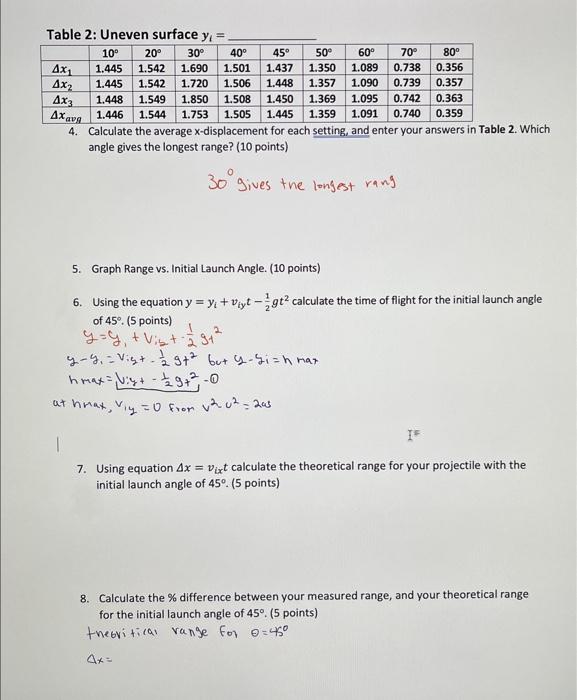 Table 2: Uneven surface yᵢ = 
10° 20° 30° 40° 45° 50° 60° 70° 80°
Δx₁ 1.445 1.542 1.690 1.501 1.437 1.350 1.089 0.738 0.356
Δx₂ 1.445 1.542 1.720 1.506 1.448 1.357 1.090 0.739 0.357
Δx3 1.448 1.549 1.850 1.508 1.450 1.369 1.095 0.742 0.363
Δxavg 1.446 1.544 1.753 1.505 1.445 1.359 1.091 0.740 0.359
4. Calculate the average x-displacement for each setting, and enter your answers in Table 2. Which
angle gives the longest range? (10 points)
30° gives the longest rang
5. Graph Range vs. Initial Launch Angle. (10 points)
6. Using the equation y = yᵢ + vᵢyt − ½gt² calculate the time of flight for the initial launch angle
of 45°. (5 points)
y=y, + Vist - ½ gt²
y-y, = Vist - ½ gt² but y-yi = h max
h max = Viyt - ½ gt² -①
at hmax, V1y = 0 from v² u² = 2as
7. Using equation Δx = vᵢₓt calculate the theoretical range for your projectile with the
initial launch angle of 45°. (5 points)
8. Calculate the % difference between your measured range, and your theoretical range
for the initial launch angle of 45°. (5 points)
theoritical range for θ=45°
Δx=